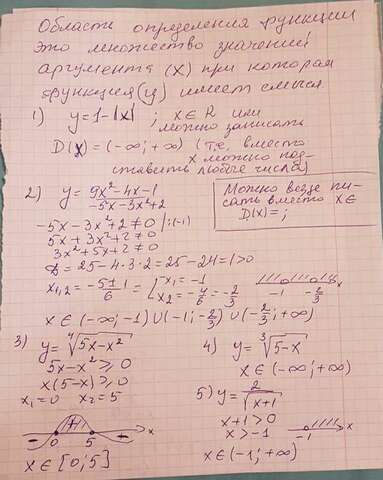 Области определения функции
это множество значений
аргумента (x) при которая
функция (y) имеет смысл.
1) y=1-|x| ; x∈R или
можно записать
D(y)=(-∞;+∞) (т.е. вместо
x можно под-
ставить любые числа)
2) y= (9x²-4x-1)/(-5x-3x²+2)
-5x-3x²+2≠0 |:(-1)
5x+3x²+2≠0
3x²+5x+2≠0
D=25-4·3·2=25-24=1>0
x₁,₂=(-5±1)/6= [x₁=-1
x₂=-4/6=-2/3
-1 -2/3 x
x∈(-∞;-1)∪(-1;-2/3)∪(-2/3;+∞)
Можно везде пи-
сать вместо x∈
D(x)=;
3) y=⁴√(5x-x²)
5x-x²≥0
x(5-x)≥0
x₁=0 x₂=5
- + - 0 5 x
x∈[0;5]
4) y=³√(5-x)
x∈(-∞;+∞)
5) y=2/√(x+1)
x+1>0
x>-1
-1 x
x∈(-1;+∞)